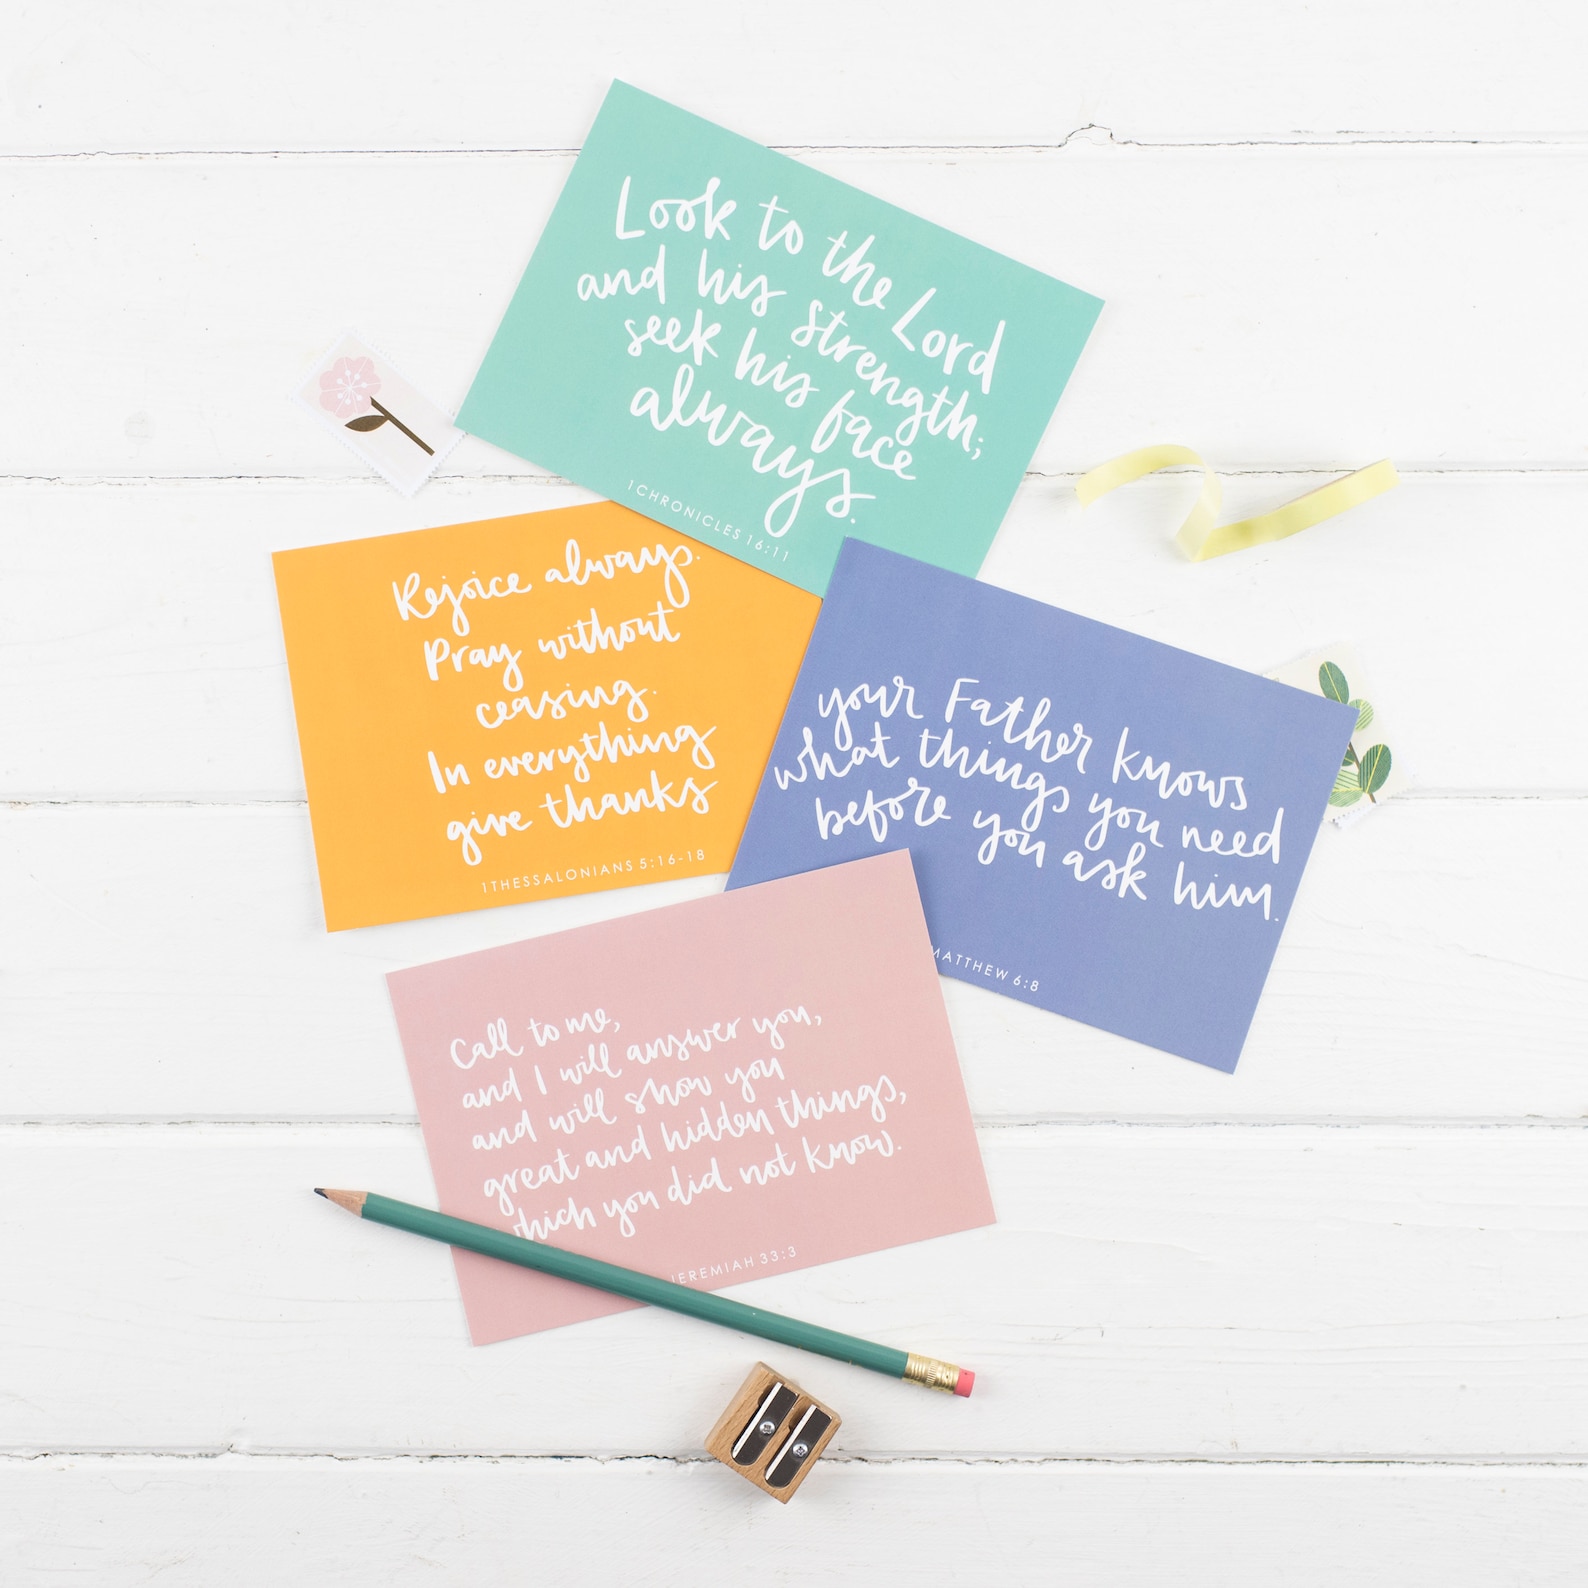 Look to the Lord
and his strength;
seek his face
always.
1 CHRONICLES 16:11
Rejoice always.
Pray without
ceasing.
In everything
give thanks
1 THESSALONIANS 5:16-18
your Father knows
what things you need
before you ask him.
MATTHEW 6:8
Call to me,
and I will answer you,
and will show you
great and hidden things,
which you did not know.
JEREMIAH 33:3